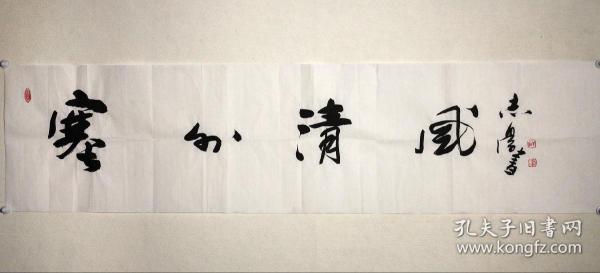 塞外清风
志漫书
孔夫子旧书网
www.kongfz.com